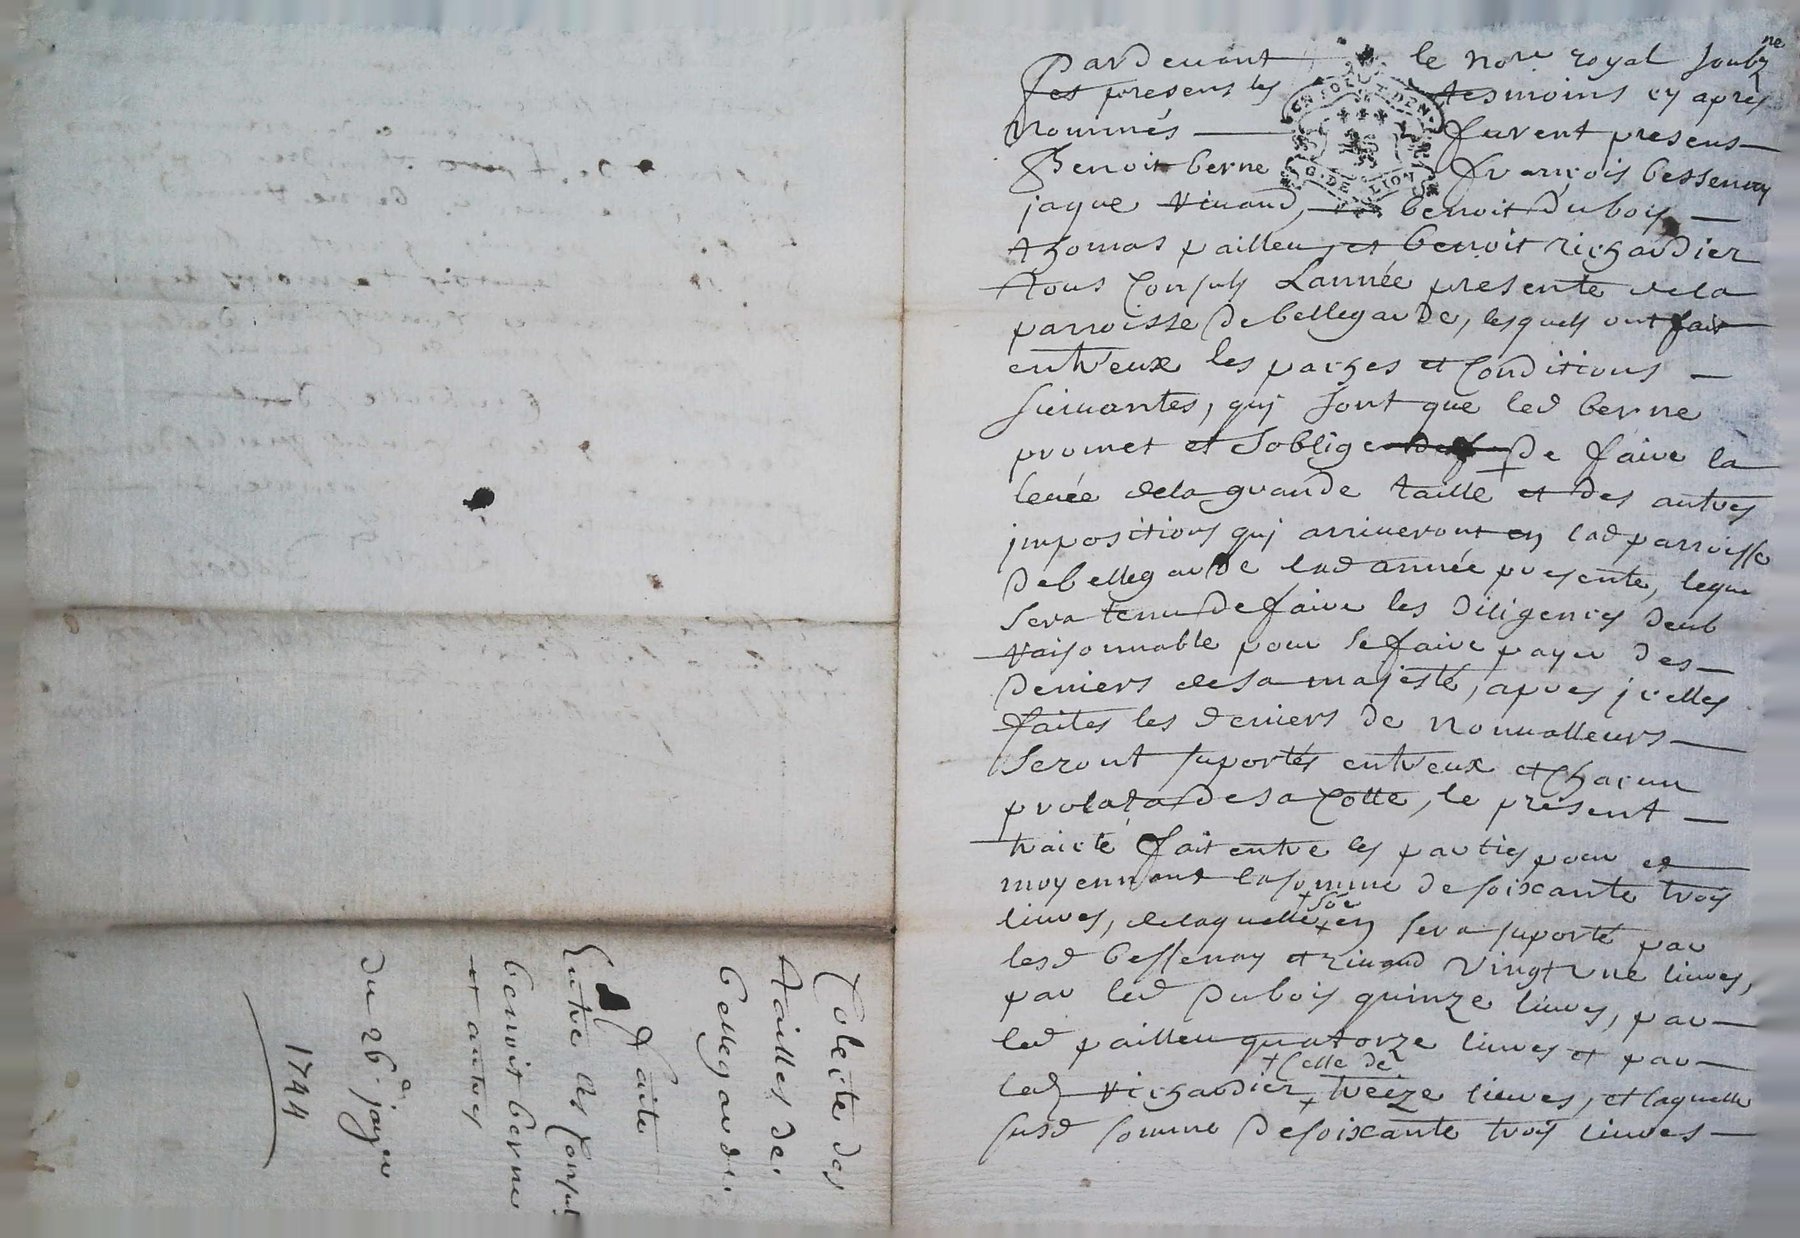 Pardevant le nore royal soubzne
et presens les tesmoins cy apres
Nommés furent presens
Benoit berne françois bessenay
jaque Rivaud, benoit Dubois
thomas pailleu et benoit Richardier
tous Consuls Lannée presente de la
parroisse De bellegarde, lesquels ont fait
entr'eux les paches et Conditions
suivantes, qui sont que led berne
promet et soblige De faire la
levée dela grande taille et des autres
impositions qui arriveront en lad parroisse
De bellegarde lad année presente, lequel
sera tenu De faire les Diligences
Raisonnable pour se faire payer des
Deniers de sa majesté, apres icelles
faites les deniers de nonvalleurs
seront suportés entr'eux et Chacun
prolata De sa Cotte, le present
traicté fait entre les parties pour et
moyennant la somme de soixante trois
livres, de laquelle + soe + en sera suporté par
lesd bessenay et Rivaud Vingt une livres,
par led Dubois quinze livres, par
led pailleu quatorze livres et par
led Richardier + Celle de + treize livres, et laquelle
susd somme De soixante trois livres
Colecte des
tailles de
bellegarde
faite
Entre les Consuls
benoit berne
et autres
du 26e janver
1744